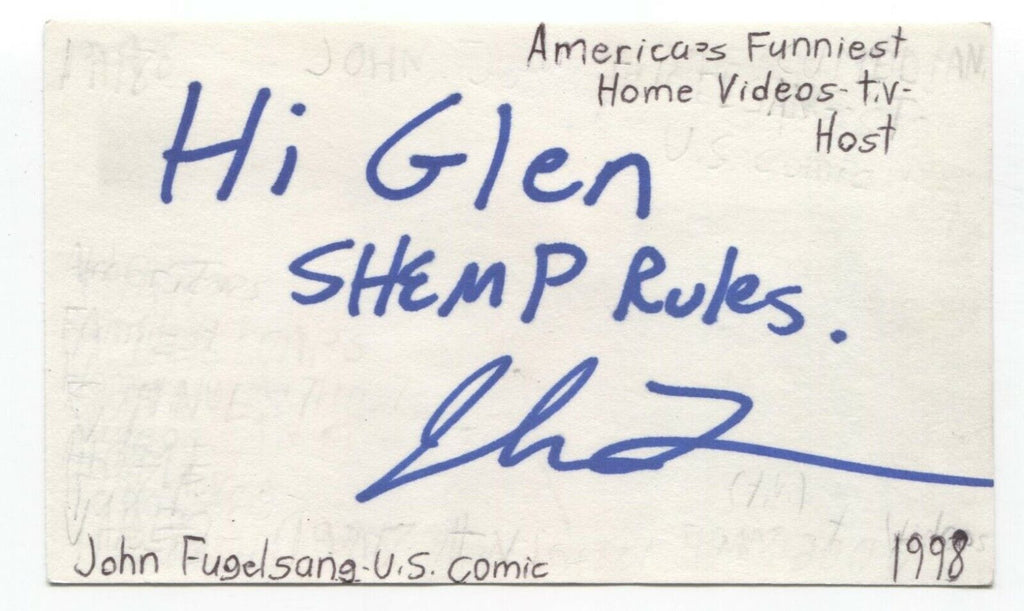 America's Funniest
Home Videos - t.v -
Host
Hi Glen
SHEMP Rules.
John Fugelsang - U.S. comic
1998